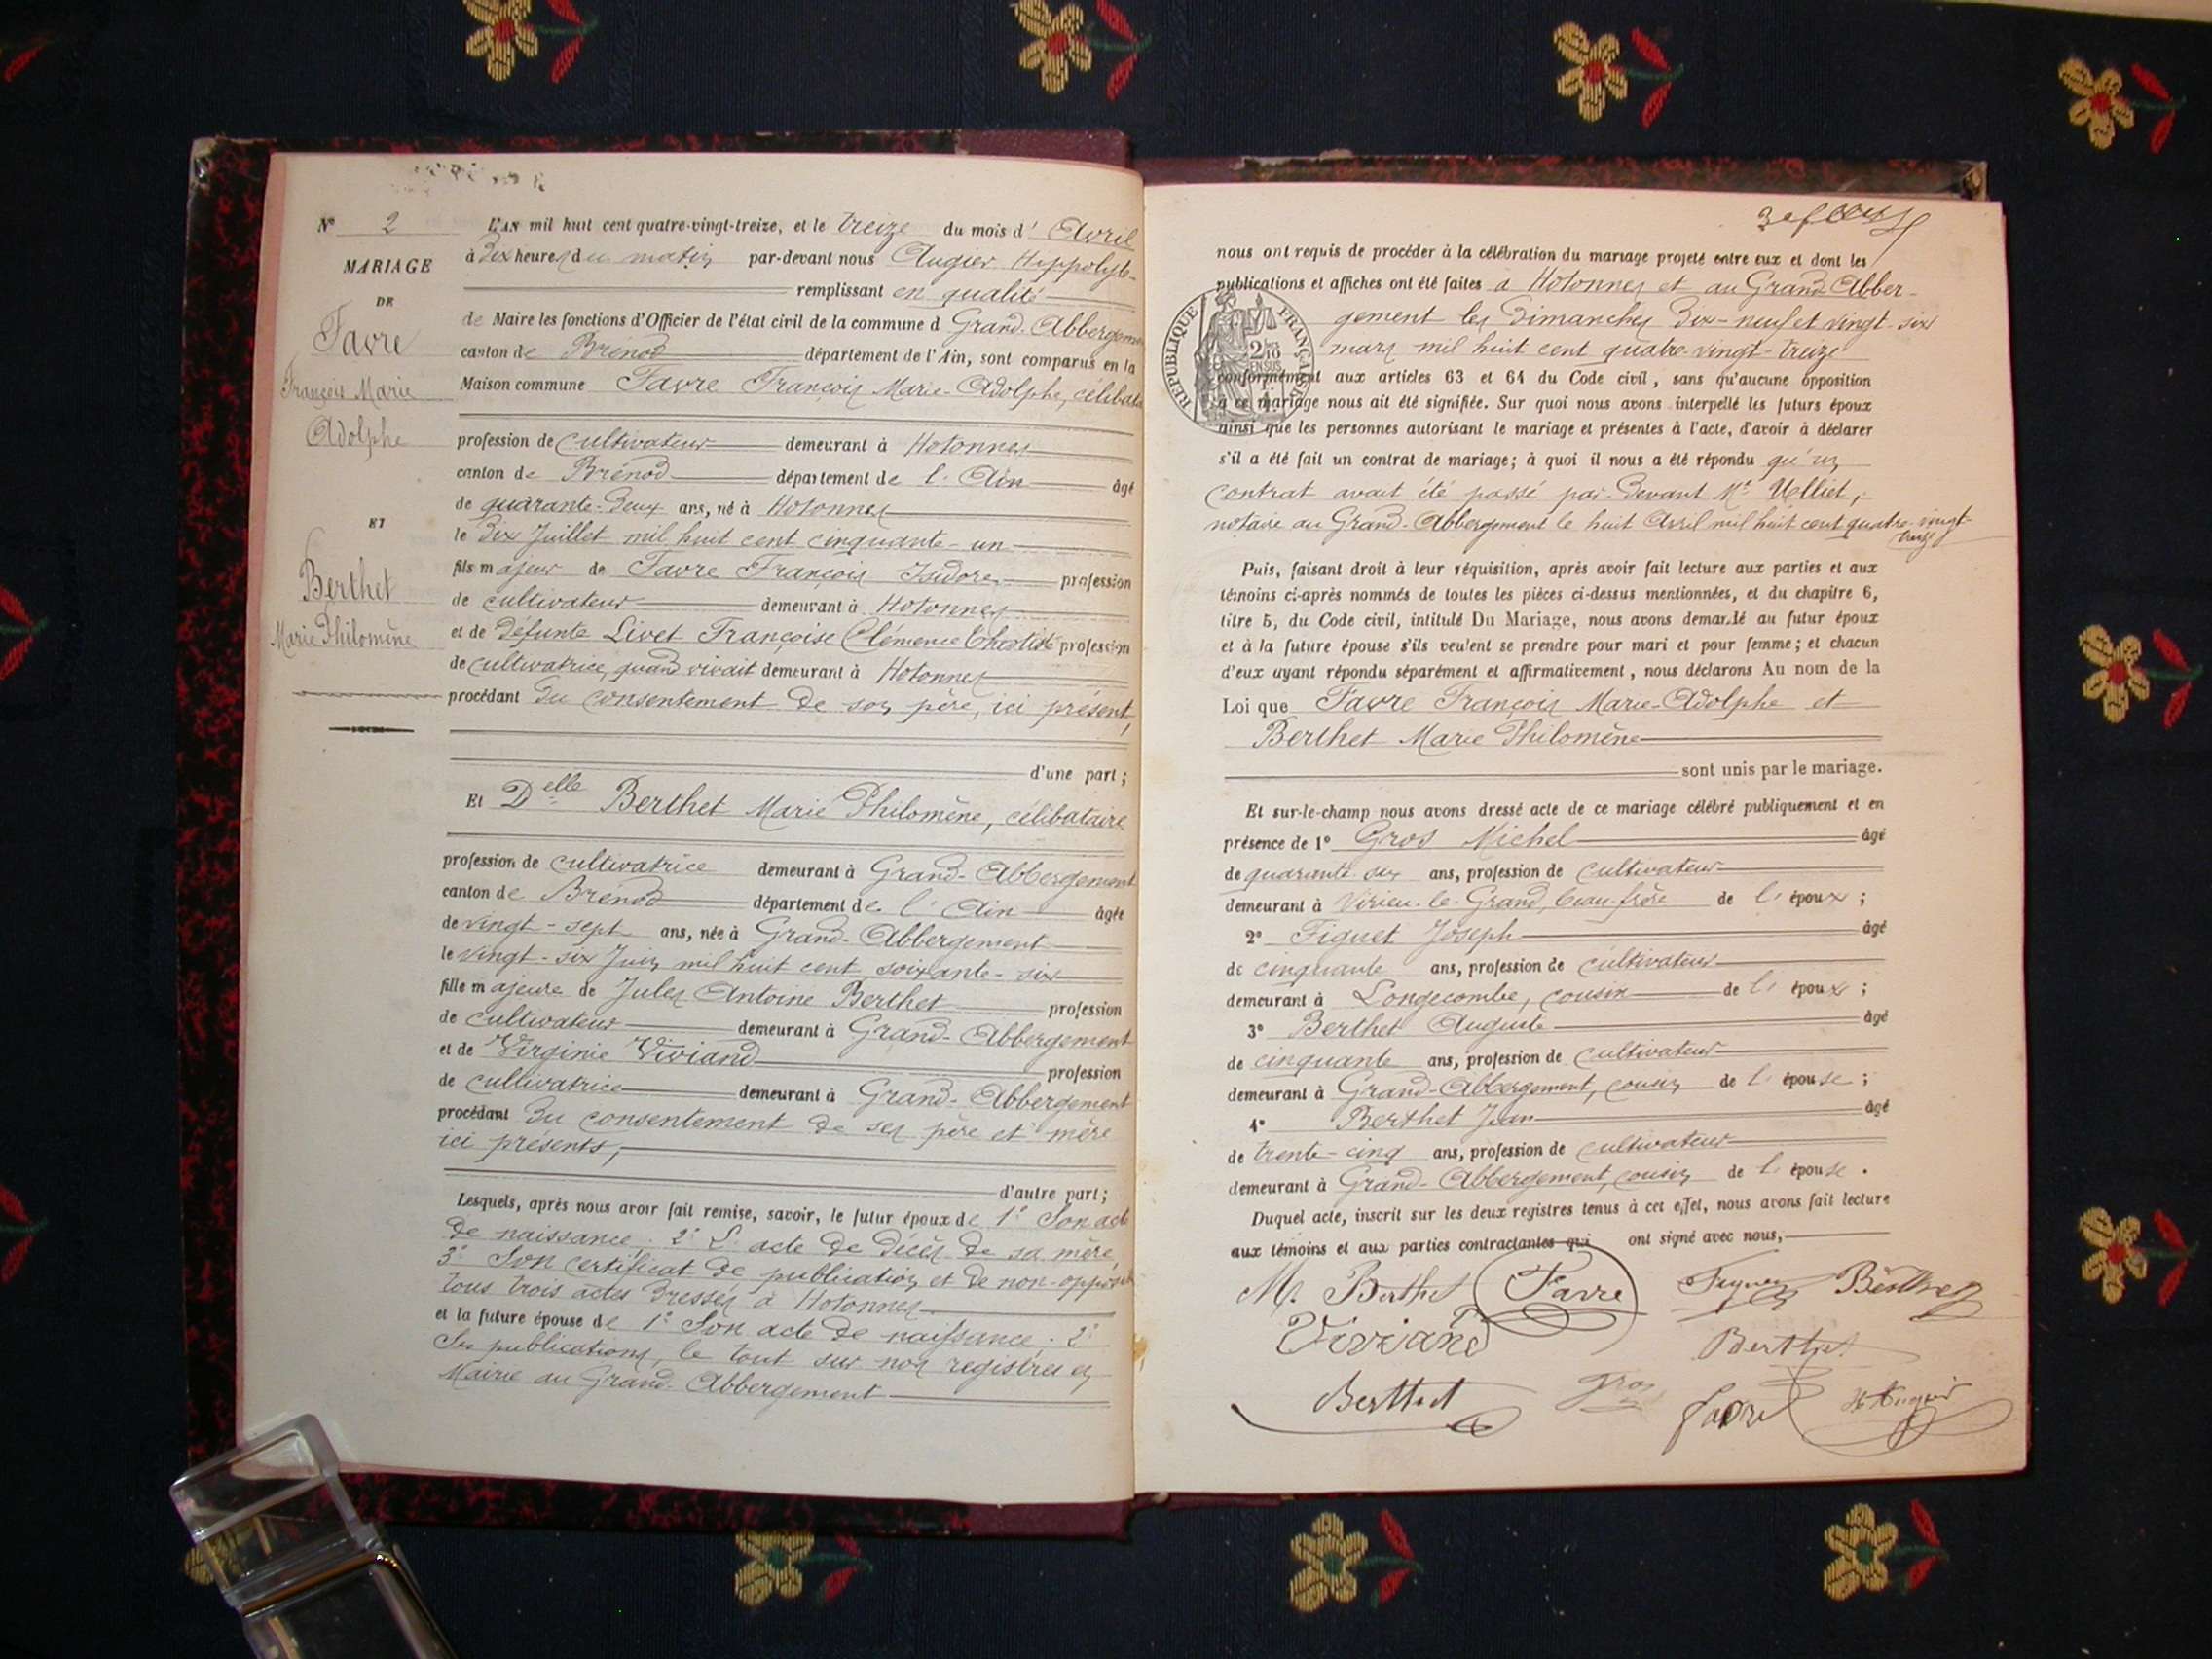 N° 2
MARIAGE
DE
Favre
François Marie
Adolphe
ET
Berthet
Marie Philomène
L'AN mil huit cent quatre-vingt-treize, et le treize du mois d' Avril
à Dix heures du matin par-devant nous Augier Hippolyte
remplissant en qualité
de Maire les fonctions d'Officier de l'état civil de la commune d Grand-Abbergement
canton de Brénod département de l'Ain, sont comparus en la
Maison commune Favre François Marie-Adolphe, célibata
profession de cultivateur demeurant à Hotonnes
canton de Brénod département de l'Ain âgé
de quarante-deux ans, né à Hotonnes
le Dix Juillet mil huit cent cinquante-un
fils majeur de Favre François Isidore profession
de cultivateur demeurant à Hotonnes
et de Défunte Livet Françoise Clémence profession
de cultivatrice, quand vivait demeurant à Hotonnes
procédant Du consentement de son père, ici présent,
d'une part;
Et Delle Berthet Marie Philomène, célibataire
profession de cultivatrice demeurant à Grand-Abbergement
canton de Brénod département de l'Ain âgée
de vingt-sept ans, née à Grand-Abbergement
le vingt-six Juin mil huit cent soixante-six
fille majeure de Jules Antoine Berthet profession
de cultivateur demeurant à Grand-Abbergement
et de Virginie Viviand profession
de cultivatrice demeurant à Grand-Abbergement
procédant Du consentement de ses père et mère
ici présents,
d'autre part;
Lesquels, après nous avoir fait remise, savoir, le futur époux de 1° Son acte
de naissance. 2° L'acte de décès de sa mère,
3° Son certificat de publication et de non-opposit
tous trois actes dressés à Hotonnes
et la future épouse de 1° Son acte de naissance. 2°
Ses publications, le tout sur nos registres en
Mairie au Grand-Abbergement
nous ont requis de procéder à la célébration du mariage projeté entre eux et dont les
publications et affiches ont été faites à Hotonnes et au Grand Abber-
gement les Dimanches Dix-neuf et vingt-six
mars mil huit cent quatre-vingt-treize
RÉPUBLIQUE FRANÇAISE
conformément aux articles 63 et 64 du Code civil, sans qu'aucune opposition
à ce mariage nous ait été signifiée. Sur quoi nous avons interpellé les futurs époux
ainsi que les personnes autorisant le mariage et présentes à l'acte, d'avoir à déclarer
s'il a été fait un contrat de mariage; à quoi il nous a été répondu qu'un
contrat avait été passé par-devant Me Uelliet,
notaire au Grand-Abbergement le huit Avril mil huit cent quatre-vingt-
treize
Puis, faisant droit à leur réquisition, après avoir fait lecture aux parties et aux
témoins ci-après nommés de toutes les pièces ci-dessus mentionnées, et du chapitre 6,
titre 5, du Code civil, intitulé Du Mariage, nous avons demandé au futur époux
et à la future épouse s'ils veulent se prendre pour mari et pour femme; et chacun
d'eux ayant répondu séparément et affirmativement, nous déclarons Au nom de la
Loi que Favre François Marie-Adolphe et
Berthet Marie Philomène
sont unis par le mariage.
Et sur-le-champ nous avons dressé acte de ce mariage célébré publiquement et en
présence de 1° Gros Michel âgé
de quarante six ans, profession de cultivateur
demeurant à Virieu-le-Grand, beau-frère de l'époux;
2° Figuet Joseph âgé
de cinquante ans, profession de cultivateur
demeurant à Longecombe, cousin de l'époux;
3° Berthet Auguste âgé
de cinquante ans, profession de cultivateur
demeurant à Grand-Abbergement, cousin de l'épouse;
4° Berthet Jean âgé
de trente-cinq ans, profession de cultivateur
demeurant à Grand-Abbergement, cousin de l'épouse.
Duquel acte, inscrit sur les deux registres tenus à cet effet, nous avons fait lecture
aux témoins et aux parties contractantes qui ont signé avec nous,
M. Berthet Favre Berthet
Viviand Berthet
Berthet Gros Favre H Augier